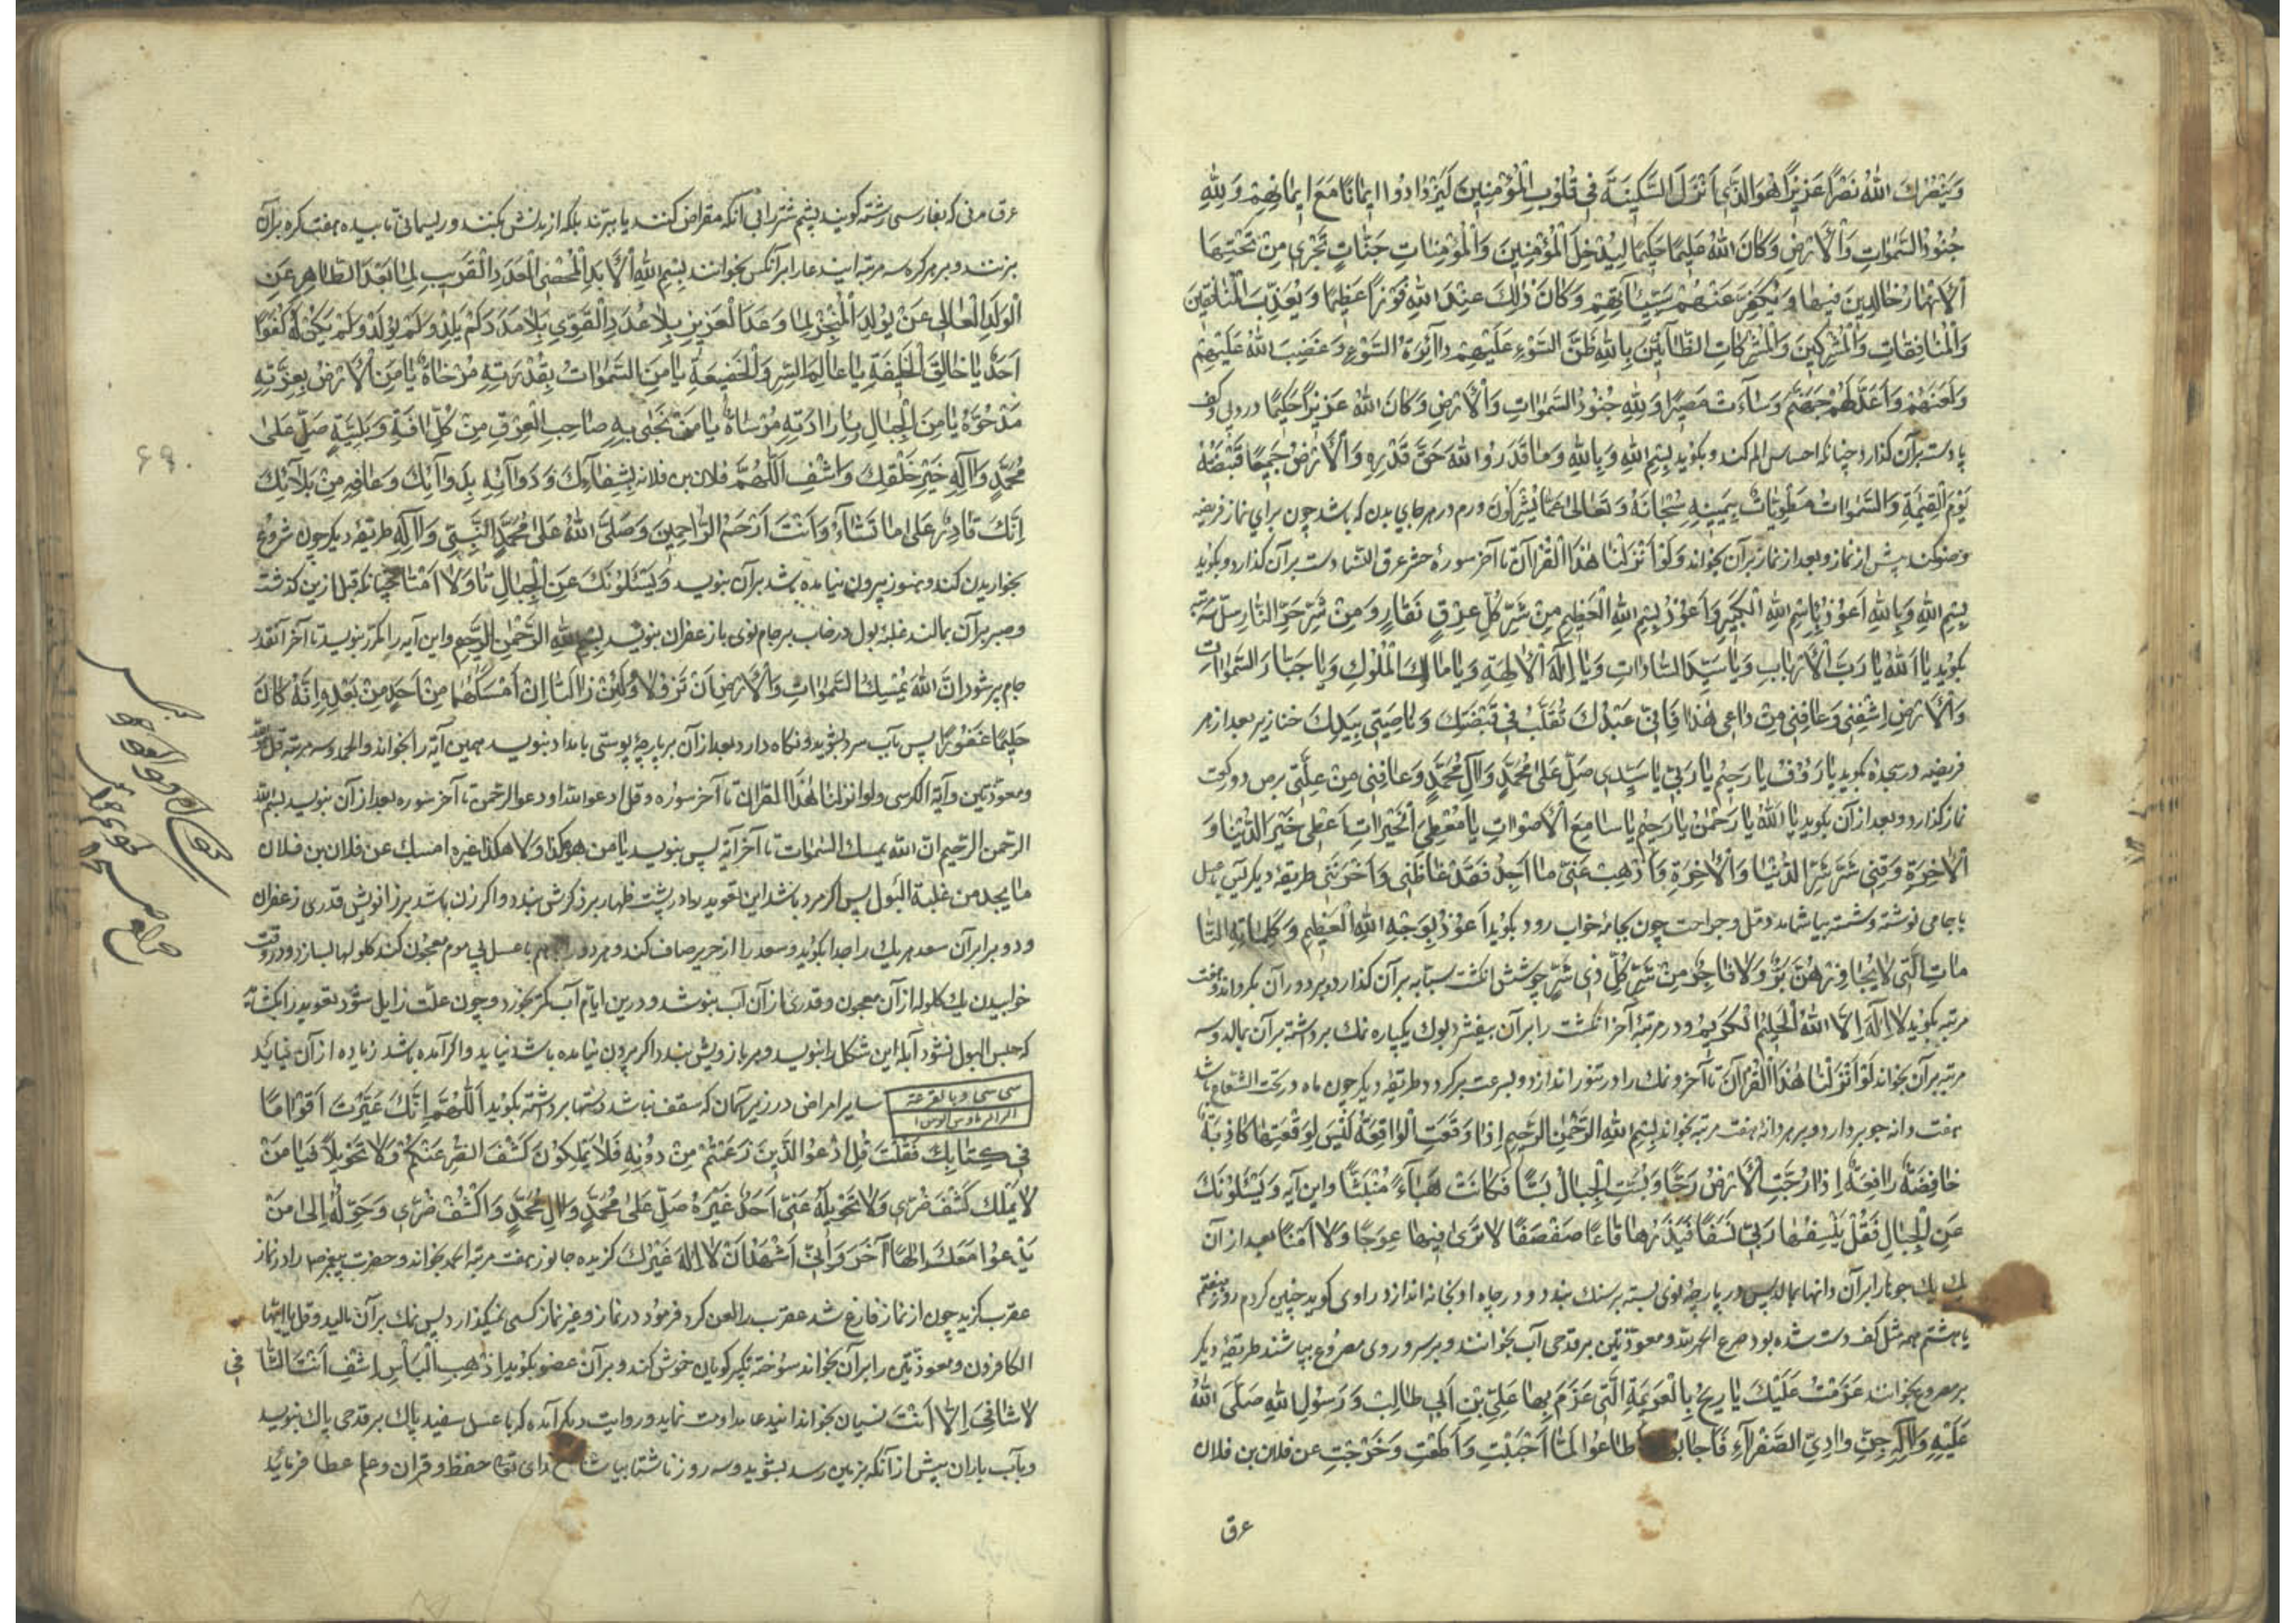 وَيَنْصُرَكَ اللهُ نَصْرًا عَزِيزًا هُوَ الَّذِي اَنْزَلَ السَّكِينَةَ فِي قُلُوبِ الْمُؤْمِنِينَ لِيَزْدَادُوا اِيمَانًا مَعَ اِيمَانِهِمْ وَلِلّٰهِ
جُنُودُ السَّمٰوَاتِ وَالْاَرْضِ وَكَانَ اللهُ عَلِيمًا حَكِيمًا لِيُدْخِلَ الْمُؤْمِنِينَ وَالْمُؤْمِنَاتِ جَنَّاتٍ تَجْرِي مِنْ تَحْتِهَا
الْاَنْهَارُ خَالِدِينَ فِيهَا وَيُكَفِّرَ عَنْهُمْ سَيِّئَاتِهِمْ وَكَانَ ذٰلِكَ عِنْدَ اللهِ فَوْزًا عَظِيمًا وَيُعَذِّبَ الْمُنَافِقِينَ
وَالْمُنَافِقَاتِ وَالْمُشْرِكِينَ وَالْمُشْرِكَاتِ الظَّانِّينَ بِاللهِ ظَنَّ السَّوْءِ عَلَيْهِمْ دَائِرَةُ السَّوْءِ وَغَضِبَ اللهُ عَلَيْهِمْ
وَلَعَنَهُمْ وَاَعَدَّ لَهُمْ جَهَنَّمَ وَسَاءَتْ مَصِيرًا وَلِلّٰهِ جُنُودُ السَّمٰوَاتِ وَالْاَرْضِ وَكَانَ اللهُ عَزِيزًا حَكِيمًا درد پی و کف
پا دست بر آن گذارد چنانکه احساس الم کند و بگوید بِسْمِ اللهِ وَبِاللهِ وَمَا قَدَرُوا اللهَ حَقَّ قَدْرِهِ وَالْاَرْضُ جَمِيعًا قَبْضَتُهُ
يَوْمَ الْقِيٰمَةِ وَالسَّمٰوَاتُ مَطْوِيَّاتٌ بِيَمِينِهِ سُبْحَانَهُ وَتَعَالٰى عَمَّا يُشْرِكُونَ ورم در هر جای بدن که باشد چون برای نماز فریضه
وضو کند پیش از نماز و بعد از نماز بر آن بخواند لَوْ اَنْزَلْنَا هٰذَا الْقُرْآنَ تا آخر سورۀ حشر عرق النسا دست بر آن گذارد و بگوید
بِسْمِ اللهِ وَبِاللهِ اَعُوذُ بِاسْمِ اللهِ الْكَبِيرِ وَاَعُوذُ بِسْمِ اللهِ الْعَظِيمِ مِنْ شَرِّ كُلِّ عِرْقٍ نَعَّارٍ وَمِنْ شَرِّ حَرِّ النَّارِ
بگوید يَا اَللهُ يَا رَبَّ الْاَرْبَابِ وَيَا سَيِّدَ السَّادَاتِ وَيَا اِلٰهَ الْاٰلِهَةِ وَيَا مَالِكَ الْمُلُوكِ وَيَا جَبَّارَ السَّمٰوَاتِ
وَالْاَرْضِ اِشْفِنِي وَعَافِنِي مِنْ دَائِي هٰذَا فَاِنِّي عَبْدُكَ تَقَلَّبُ فِي قَبْضَتِكَ وَنَاصِيَتِي بِيَدِكَ خنازیر بعد از هر
فریضه در سجده بگوید يَا رَؤُفُ يَا رَحِيمُ يَا رَبِّ يَا سَيِّدِي صَلِّ عَلٰى مُحَمَّدٍ وَاٰلِ مُحَمَّدٍ وَعَافِنِي مِنْ عِلَّتِي برص دو رکعت
نماز گذارد و بعد از آن بگوید يَا اَللهُ يَا رَحْمٰنُ يَا رَحِيمُ يَا سَامِعَ الْاَصْوَاتِ يَا مُعْطِيَ الْخَيْرَاتِ اَعْطِنِي خَيْرَ الدُّنْيَا وَ
الْاٰخِرَةِ وَقِنِي شَرَّ الدُّنْيَا وَالْاٰخِرَةِ وَاَذْهِبْ عَنِّي مَا اَجِدُ فَقَدْ غَاظَنِي وَاَحْزَنَنِي طریقۀ دیگر
با جامی نوشته و شسته بیاشامد دمل و جراحت چون بجامۀ خواب رود بگوید اَعُوذُ بِوَجْهِ اللهِ الْعَظِيمِ وَكَلِمَاتِهِ التَّا
مَّاتِ الَّتِي لَا يُجَاوِزُهُنَّ بَرٌّ وَلَا فَاجِرٌ مِنْ شَرِّ كُلِّ ذِي شَرٍّ جوشش انگشت سبابه بر آن گذارد و بر دور آن بگرداند و هفت
مرتبه بگوید لَا اِلٰهَ اِلَّا اللهُ الْحَلِيمُ الْكَرِيمُ و در مرتبۀ آخر انگشت را بر آن بفشرد ثؤلول یکپاره نمک برداشته بر آن بمالد و سه
مرتبه بر آن بخواند لَوْ اَنْزَلْنَا هٰذَا الْقُرْآنَ تا آخر و نمک را در تنور اندازد و بسرعت برگردد طریقۀ دیگر چون ماه در تحت الشعاع باشد
هفت دانه جو بردارد و بر هر دانه هفت مرتبه بخواند بِسْمِ اللهِ الرَّحْمٰنِ الرَّحِيمِ اِذَا وَقَعَتِ الْوَاقِعَةُ لَيْسَ لِوَقْعَتِهَا كَاذِبَةٌ
خَافِضَةٌ رَافِعَةٌ اِذَا رُجَّتِ الْاَرْضُ رَجًّا وَبُسَّتِ الْجِبَالُ بَسًّا فَكَانَتْ هَبَاءً مُنْبَثًّا و این آیه وَيَسْئَلُونَكَ
عَنِ الْجِبَالِ فَقُلْ يَنْسِفُهَا رَبِّي نَسْفًا فَيَذَرُهَا قَاعًا صَفْصَفًا لَا تَرٰى فِيهَا عِوَجًا وَلَا اَمْتًا بعد از آن
یک یک جو را بر آن دانها بمالد پس در پارچۀ نوی بسته بر سنگ بندد و در چاه اندازد راوی گوید چنین کردم روز هفتم
یا هشتم همه مثل کف دست شده بود صرع الحمد لله و معوذتین بر قدحی آب بخوانند و بر سر و روی مصروع بپاشند طریقۀ دیگر
بر مصروع بخوانند عَزَمْتُ عَلَيْكَ يَا رِيحُ بِالْعَزِيمَةِ الَّتِي عَزَمَ بِهَا عَلِيُّ بْنُ اَبِي طَالِبٍ وَرَسُولُ اللهِ صَلَّى اللهُ
عَلَيْهِ وَاٰلِهِ جِنَّ وَادِي الصَّفْرَاءِ فَاَجَابُوا اَطَاعُوا لَمَّا اَجَبْتِ وَاَطَعْتِ وَخَرَجْتِ عن فلان بن فلان
عرق
عرق مدنی که بفارسی رشته گویند پشم شتر را بی آنکه مقراض کنند یا ببرند بلکه از بدنش بکنند و ریسمانی تابیده هفت گره بر آن
بزنند و بر هر گره سه مرتبه این دعا را بر آنکس بخوانند بِسْمِ اللهِ الْاَبَدِ الْمُحْصِي الْعَدَدِ الْقَرِيبِ لِمَا بَعُدَ الطَّاهِرِ عَنِ
الْوَلَدِ الْعَالِي عَنْ يُولَدَ الْمُنْجِزِ لِمَا وَعَدَ الْعَزِيزِ بِلَا عَدَدِ الْقَوِيِّ بِلَا مَدَدٍ لَمْ يَلِدْ وَلَمْ يُولَدْ وَلَمْ يَكُنْ لَهُ كُفُوًا
اَحَدٌ يَا خَالِقَ الْخَلِيقَةِ يَا عَالِمَ السِّرِّ وَالْخَفِيَّةِ يَا مَنِ السَّمٰوَاتُ بِقُدْرَتِهِ مُرْخَاةٌ يَا مَنِ الْاَرْضُ بِعِزَّتِهِ
مَدْحُوَّةٌ يَا مَنِ الْجِبَالُ بِاِرَادَتِهِ مُرْسَاةٌ يَا مَنْ نَجٰى بِهِ صَاحِبُ الْغَرَقِ مِنْ كُلِّ اٰفَةٍ وَبَلِيَّةٍ صَلِّ عَلٰى
مُحَمَّدٍ وَاٰلِهِ خَيْرِ خَلْقِكَ وَاشْفِ اَللّٰهُمَّ فلان بن فلانه بِشِفَائِكَ وَدَاوِهِ بِدَوَائِكَ وَعَافِهِ مِنْ بَلَائِكَ
اِنَّكَ قَادِرٌ عَلٰى مَا تَشَاءُ وَاَنْتَ اَرْحَمُ الرَّاحِمِينَ وَصَلَّى اللهُ عَلٰى مُحَمَّدٍ النَّبِيِّ وَاٰلِهِ طریقۀ دیگر چون شروع
بخاریدن کند و هنوز بیرون نیامده باشد بر آن بنویسد وَيَسْئَلُونَكَ عَنِ الْجِبَالِ تا وَلَا اَمْتًا چنانکه قبل ازین گذشت
و صبر بر آن بمالند غلبۀ بول در خواب بر جام نوی با زعفران بنویسد بِسْمِ اللهِ الرَّحْمٰنِ الرَّحِيمِ و این آیه را مکرر بنویسد تا آخر آنقدر
جام پر شود اِنَّ اللهَ يُمْسِكُ السَّمٰوَاتِ وَالْاَرْضَ اَنْ تَزُولَا وَلَئِنْ زَالَتَا اِنْ اَمْسَكَهُمَا مِنْ اَحَدٍ مِنْ بَعْدِهِ اِنَّهُ كَانَ
حَلِيمًا غَفُورًا پس بآب سرد بشوید و نگاه دارد بعد از آن بر پارچۀ پوستی بامداد بنویسد همین آیه را بخواند و الحمد و سه مرتبه قل هو الله
و معوذتین و آیة الکرسی و لو انزلنا هذا القرآن تا آخر سوره و قل ادعوا الله او ادعوا الرحمن تا آخر سوره بعد از آن بنویسد بسم الله
الرحمن الرحیم ان الله یمسک السموات تا آخر آیه پس بنویسد یا من هو هکذا ولا هکذا غیره امسک عن فلان بن فلان
ما یجد من غلبة البول پس اگر مرد باشد این تعویذ را در پشت ظهار بر ذکرش بندد و اگر زن باشد بر زانویش قدری زعفران
و دو برابر آن سعد هر یک را جدا بکوبد و سعد را از حریر صاف کند و هر دو را بهم با عسل بی موم معجون کند کلولها بسازد و در وقت
خوابیدن یک کلوله از آن معجون و قدری از آن آب بنوشد و درین ایام آب کمتر بخورد و چون علت زایل شود تعویذ را بگشاید
که حبس البول نشود آبله این شکل را بنویسد و بر بازویش بندد اگر بیرون نیامده باشد نیاید و اگر آمده باشد زیاده از آن نیاید
سایر امراض در زیر آسمان که سقف نباشد دستها برداشته بگوید اَللّٰهُمَّ اِنَّكَ عَيَّرْتَ اَقْوَامًا
فِي كِتَابِكَ فَقُلْتَ قُلِ ادْعُوا الَّذِينَ زَعَمْتُمْ مِنْ دُونِهِ فَلَا يَمْلِكُونَ كَشْفَ الضُّرِّ عَنْكُمْ وَلَا تَحْوِيلًا فَيَا مَنْ
لَا يَمْلِكُ كَشْفَ ضُرِّي وَلَا تَحْوِيلَهُ عَنِّي اَحَدٌ غَيْرُهُ صَلِّ عَلٰى مُحَمَّدٍ وَاٰلِ مُحَمَّدٍ وَاكْشِفْ ضُرِّي وَحَوِّلْهُ اِلٰى مَنْ
يَدْعُوا مَعَكَ اِلٰهًا اٰخَرَ وَاِنِّي اَشْهَدُ اَنْ لَا اِلٰهَ غَيْرُكَ گزیدۀ جانور هفت مرتبه الحمد بخواند و حضرت پیغمبر ص را در نماز
عقرب گزید چون از نماز فارغ شد عقرب را لعن کرد فرمود در نماز و غیر نماز کسی نمیگذارد پس نمک بر آن مالید و قل یا ایها
الکافرون و معوذتین را بر آن بخواند سوخته تکبیر گویان خوش کند و بر آن عضو بگوید اَذْهِبِ الْبَأْسَ اِشْفِ اَنْتَ الشَّا
فِي
لَا شَافِيَ اِلَّا اَنْتَ نسیان بخواند این دعا مداومت نماید و روایت دیگر آمده که با عسل سفید پاک بر قدحی پاک بنویسد
و بآب باران پیش از آنکه بزمین رسد بشوید و سه روز ناشتا بیاشامد حفظ و قرآن و علم عطا فرماید